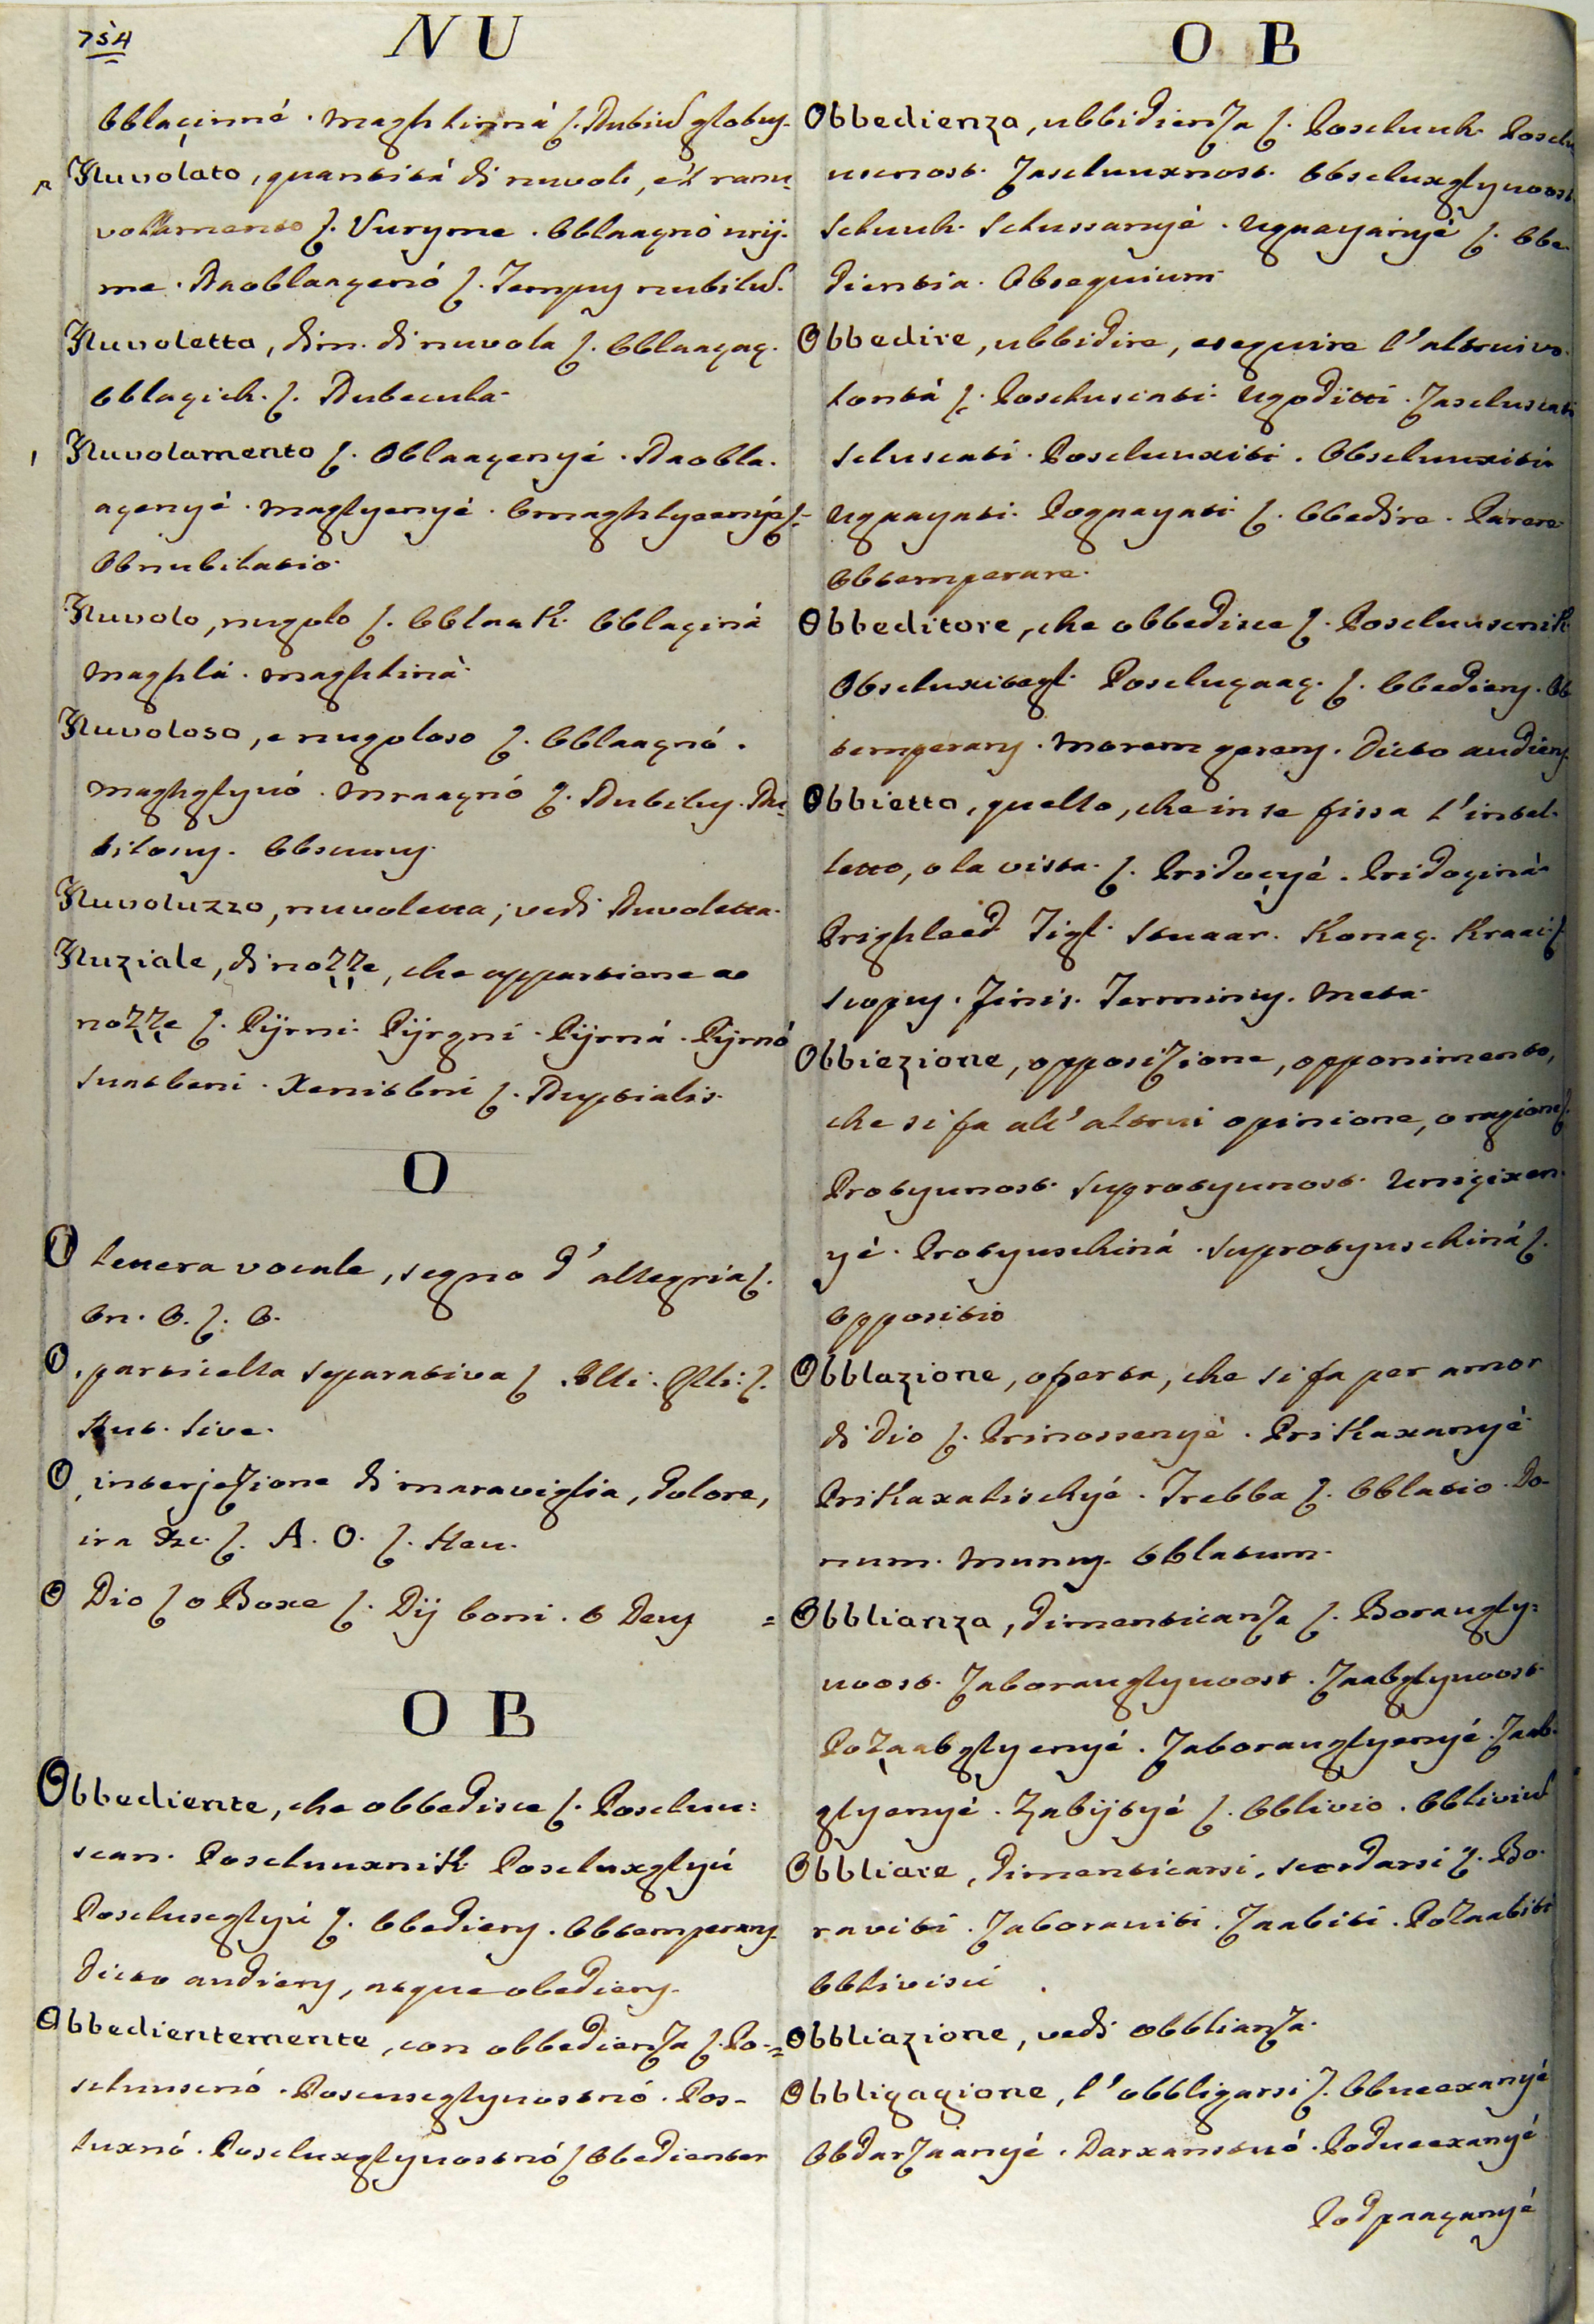 754
NU
Obblaçinné. Maghlinná ſ. Nubiũ globuꝫ.
Nuvolato, quantitá di nuvoli, e'l rannu-
volamento ſ. Vuryme. Obblaaçnó urij-
me. Naoblaaçenó ſ. Tempuꝫ nubilũ.
Nuvoletta, dim. di nuvola ſ. Obblaaçaç.
Obblaçich. ſ. Nubecula.
Nuvolamento ſ. Oblaaçenyé. Naobla-
açenyé. Maglyenyé. Omaghlyeenyé ſ.
Obnubilatio.
Nuvolo, nugolo ſ. Obblaak. Obblaçiná
Maghlá. Maghliná.
Nuvoloso, e nugoloso ſ. Obblaaçnó.
Maghglyuó. Mraaçnó ſ. Nubiluꝫ. Nu-
bilosuꝫ. Obscuruꝫ.
Nuvoluzzo, nuvoletta; vedi Nuvoletta.
Nuziale, di nozze, che appartiene a
nozze ſ. Pijrni. Pijrgní. Pijrná. Pijrnó
Suatbeni. Xenitbní ſ. Nuptialis.
O
O lettera vocale, segno d'allegria ſ.
On. O. ſ. O.
O, particella separativa ſ. Illi. Glli. ſ.
Aut. Sive.
O, interjezione di maraviglia, dolore,
ira &c. ſ. A. O. ſ. Heu.
O Dio ſ o Boxe ſ. Dij boni. O Deuꝫ
OB
Obbediente, che obbedisce ſ. Poscluu-
scan. Poscluuxnik. Poscluxglyú
Poscluseglyú ſ. Obedienꝫ. Obtemperanꝫ.
Dicto audienꝫ, atque obedienꝫ.
Obbedientemente, con obbedienza ſ. Po-
scluuscnó. Poscuseglyuostnó. Pos-
luxnó. Poscluxglyuostnó ſ Obedienter
OB
Obbedienza, ubbidienza ſ. Poscluuh. Posclu
uscnost. Zascluuxnost. Obscluxglyuoost.
Scluuh. Sclussanyé. Ugnayanyé ſ. Obe-
dientia. Obsequium.
Obbedire, ubbidire, eseguire l'altrui vo-
lontá ſ. Posclusciati. Ugoditti. Zasclusciati
Sclusciati. Poscluuxiti. Obscluuxiti.
Ugnayati. Pognayati ſ. Obedire. Parere.
Obtemperare.
Obbeditore, che obbedisce ſ. Poscluuscnik.
Obscluxitegl. Posclugaaç. ſ. Obedienꝫ. Ob
temperanꝫ. Morem gerenꝫ. Dicto audienꝫ.
Obbietto, quello, che in se fissa l'intel-
letto, o la vista. ſ. Pridoçyé. Pridoçiná.
Prighleed Zigl. Stuaar. Konaç. Kraai ſ.
Scopuꝫ. Finis. Terminuꝫ. Meta.
Obbiezione, opposizione, opponimento,
che si fa all'altrui opinione, o ragion ſ.
Protyunost. Suprotyunost. Uniçixen-
yé. Protyuschiná. Suprotyuschiná ſ.
Oppositio
Obblazione, oferta, che si fa per amor
di Dio ſ. Prinossenyé. Prikaxanyé.
Prikaxalischyé. Trebba ſ. Oblatio. Do-
num. Munuꝫ. Oblatum.
Obblianza, dimenticanza ſ. Boraugly-
uoost. Zaborauglyuoost. Zaabglyuoost
Pozaabglyenyé. Zaborauglyenyé. Zaab-
glyenyé. Zabijtyé ſ. Oblivio. Obliviũ
Obbliare, dimenticarsi, scordarsi ſ. Bo-
raviti. Zaborauiti. Zaabiti. Pozaabiti
Oblivisci.
Obbliazione, vedi obblianza.
Obbligagione, l'obbligarsi ſ. Obueexanyé
Obdarzaanyé. Darxanstuó. Podueexanyé
Podpaaçanyé